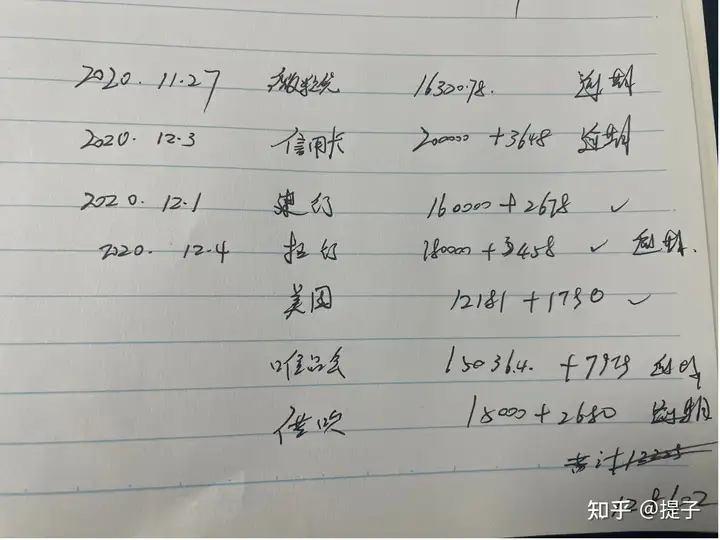 2020.11.27 16300.78. 逾期
2020.12.3 信用卡 200000+3648 逾期
2020.12.1 建行 160000+2678 ✓
2020.12.4 招行 180000+3458 ✓ 逾期.
美团 12181+1790 ✓
唯品会 15036.4. +7979
借呗 18000+2680 逾期
知乎 @提子